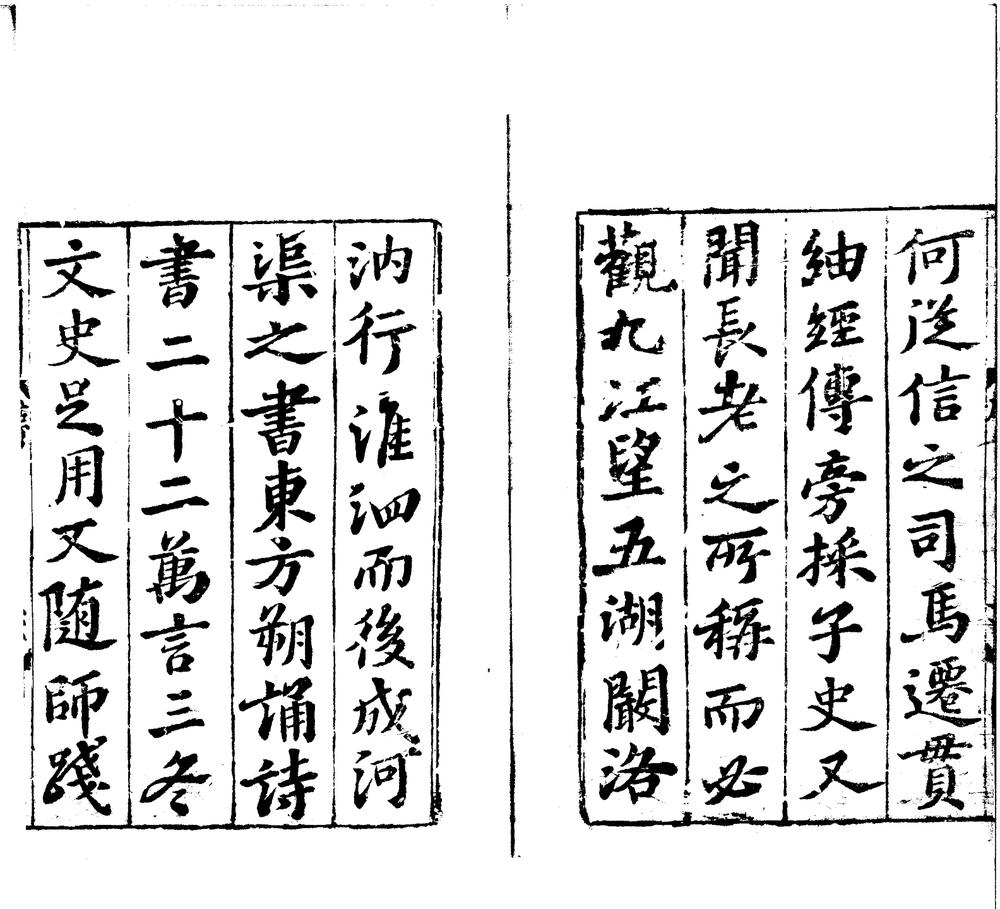 何從信之司馬遷貫
紬經傳旁採子史又
聞長老之所稱而必
觀九江望五湖闞洛
汭行淮泗而後成河
渠之書東方朔誦詩
書二十二萬言三冬
文史足用又随師踐